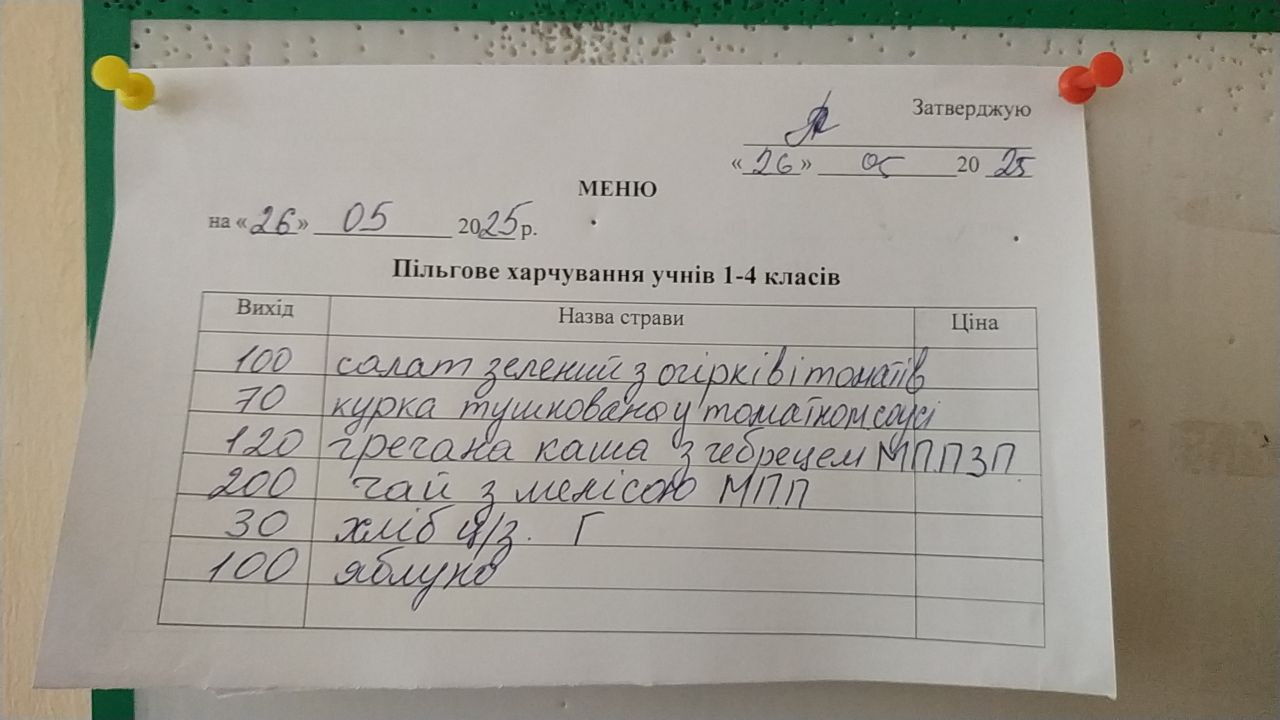 Затверджую
« 26 » 05 20 25
МЕНЮ
на « 26 » 05 2025 р.
Пільгове харчування учнів 1-4 класів
Вихід Назва страви Ціна
100 салат зелений з огірків і томатів
70 курка тушкована у томатном соусі
120 гречана каша з чебрецем МППЗП
200 чай з мелісою МПП
30 хліб ц/з. Г
100 яблуко